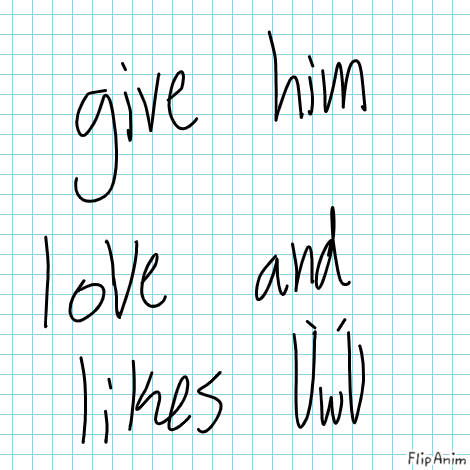 give him
love and
likes (ìwí)
FlipAnim